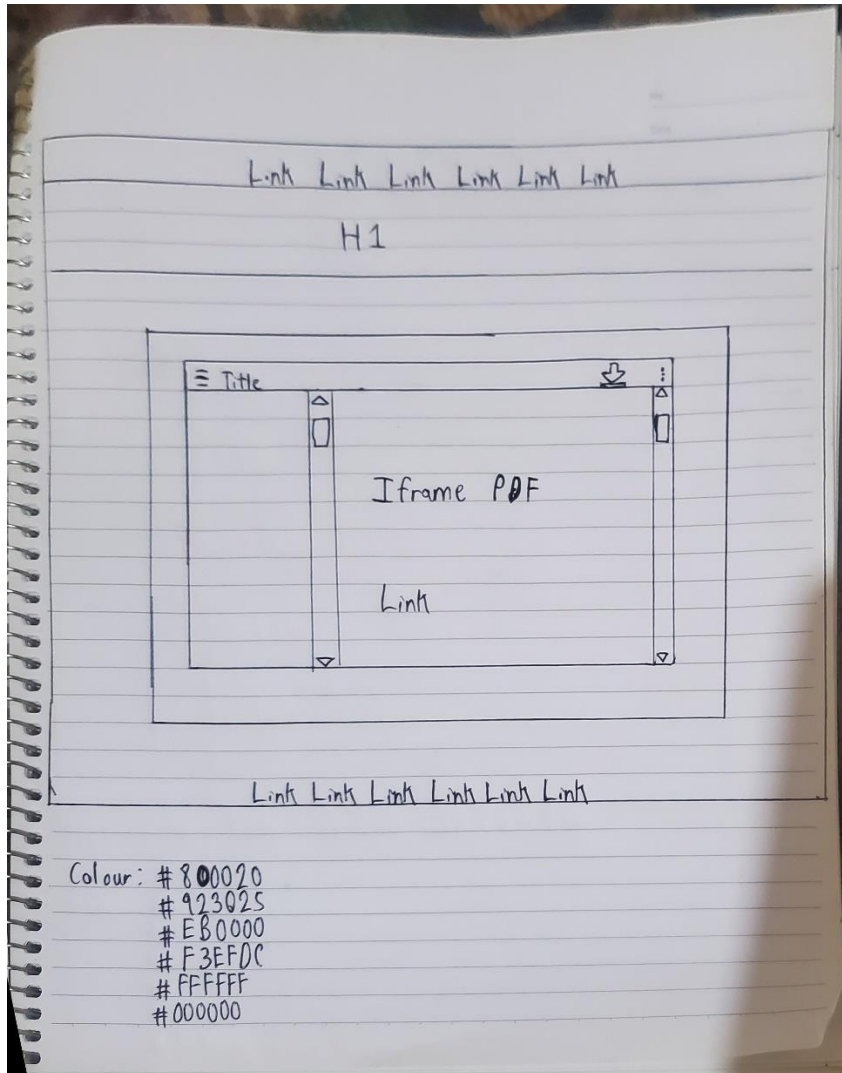 Link Link Link Link Link Link
H1
Title
Iframe PDF
Link
Link Link Link Link Link Link
Colour: #800020
#923025
#EB0000
#F3EFDC
#FFFFFF
#000000